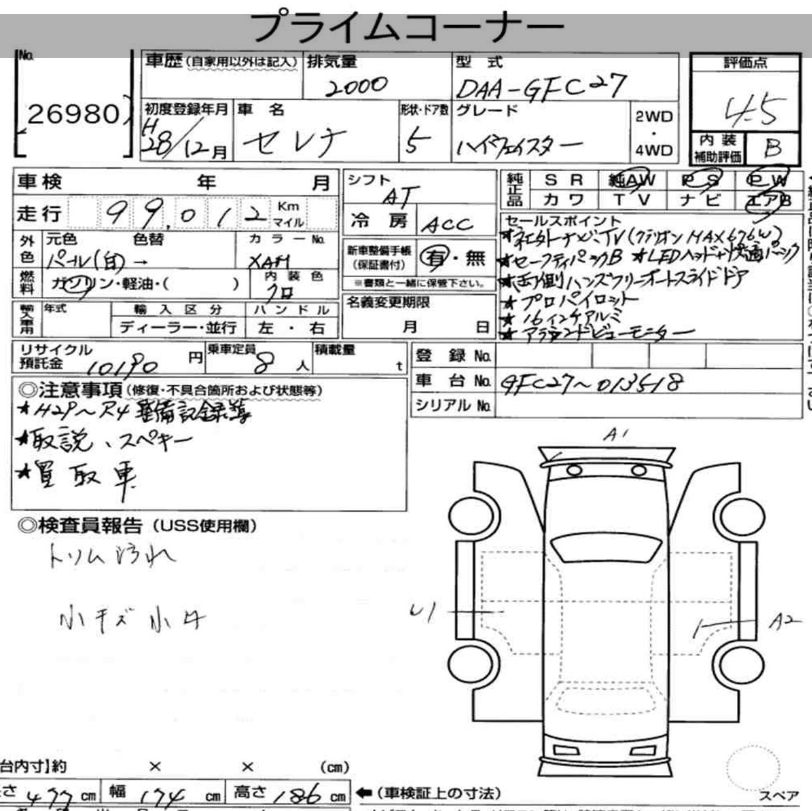 プライムコーナー
No.
26980
車歴(自家用以外は記入) 排気量 2000 型式 DAA-GFC27 評価点 4.5
初度登録年月 H28/12月 車名 セレナ 形状・ドア数 5 グレード ハイウェイスター 2WD・4WD 内装補助評価 B
車検 年 月 シフト AT 純正品 SR 純AW PS PW
走行 99,012 Km マイル 冷房 ACC カワ TV ナビ エアB
外色 元色 パール(白) 色替 → カラーNo. XAM 新車整備手帳(保証書付) 有・無
※書類と一緒に保管下さい。
燃料 ガソリン・軽油・( ) 内装色 クロ 名義変更期限 月 日
輸入車用 年式 輸入区分 ディーラー・並行 ハンドル 左・右
セールスポイント
★社外ナビ、TV(クラリオンMAX676W)
★セーフティパックB ★LEDヘッド
★両側ハンズフリーオートスライドドア
★プロパイロット
★16インチアルミ
★アラウンドビューモニター
リサイクル預託金 10190円 乗車定員 8人 積載量 t 登録No.
車台No. GFC27~013518
シリアルNo.
◎注意事項(修復・不具合箇所および状態等)
★H29~R4 整備記録簿
★取説、スペキー
★買取車
◎検査員報告(USS使用欄)
トリム汚れ
小キズ小凹
A1
U1
A2
台内寸】約 × × (cm)
さ 477cm 幅 174cm 高さ 186cm ←(車検証上の寸法)
スペア